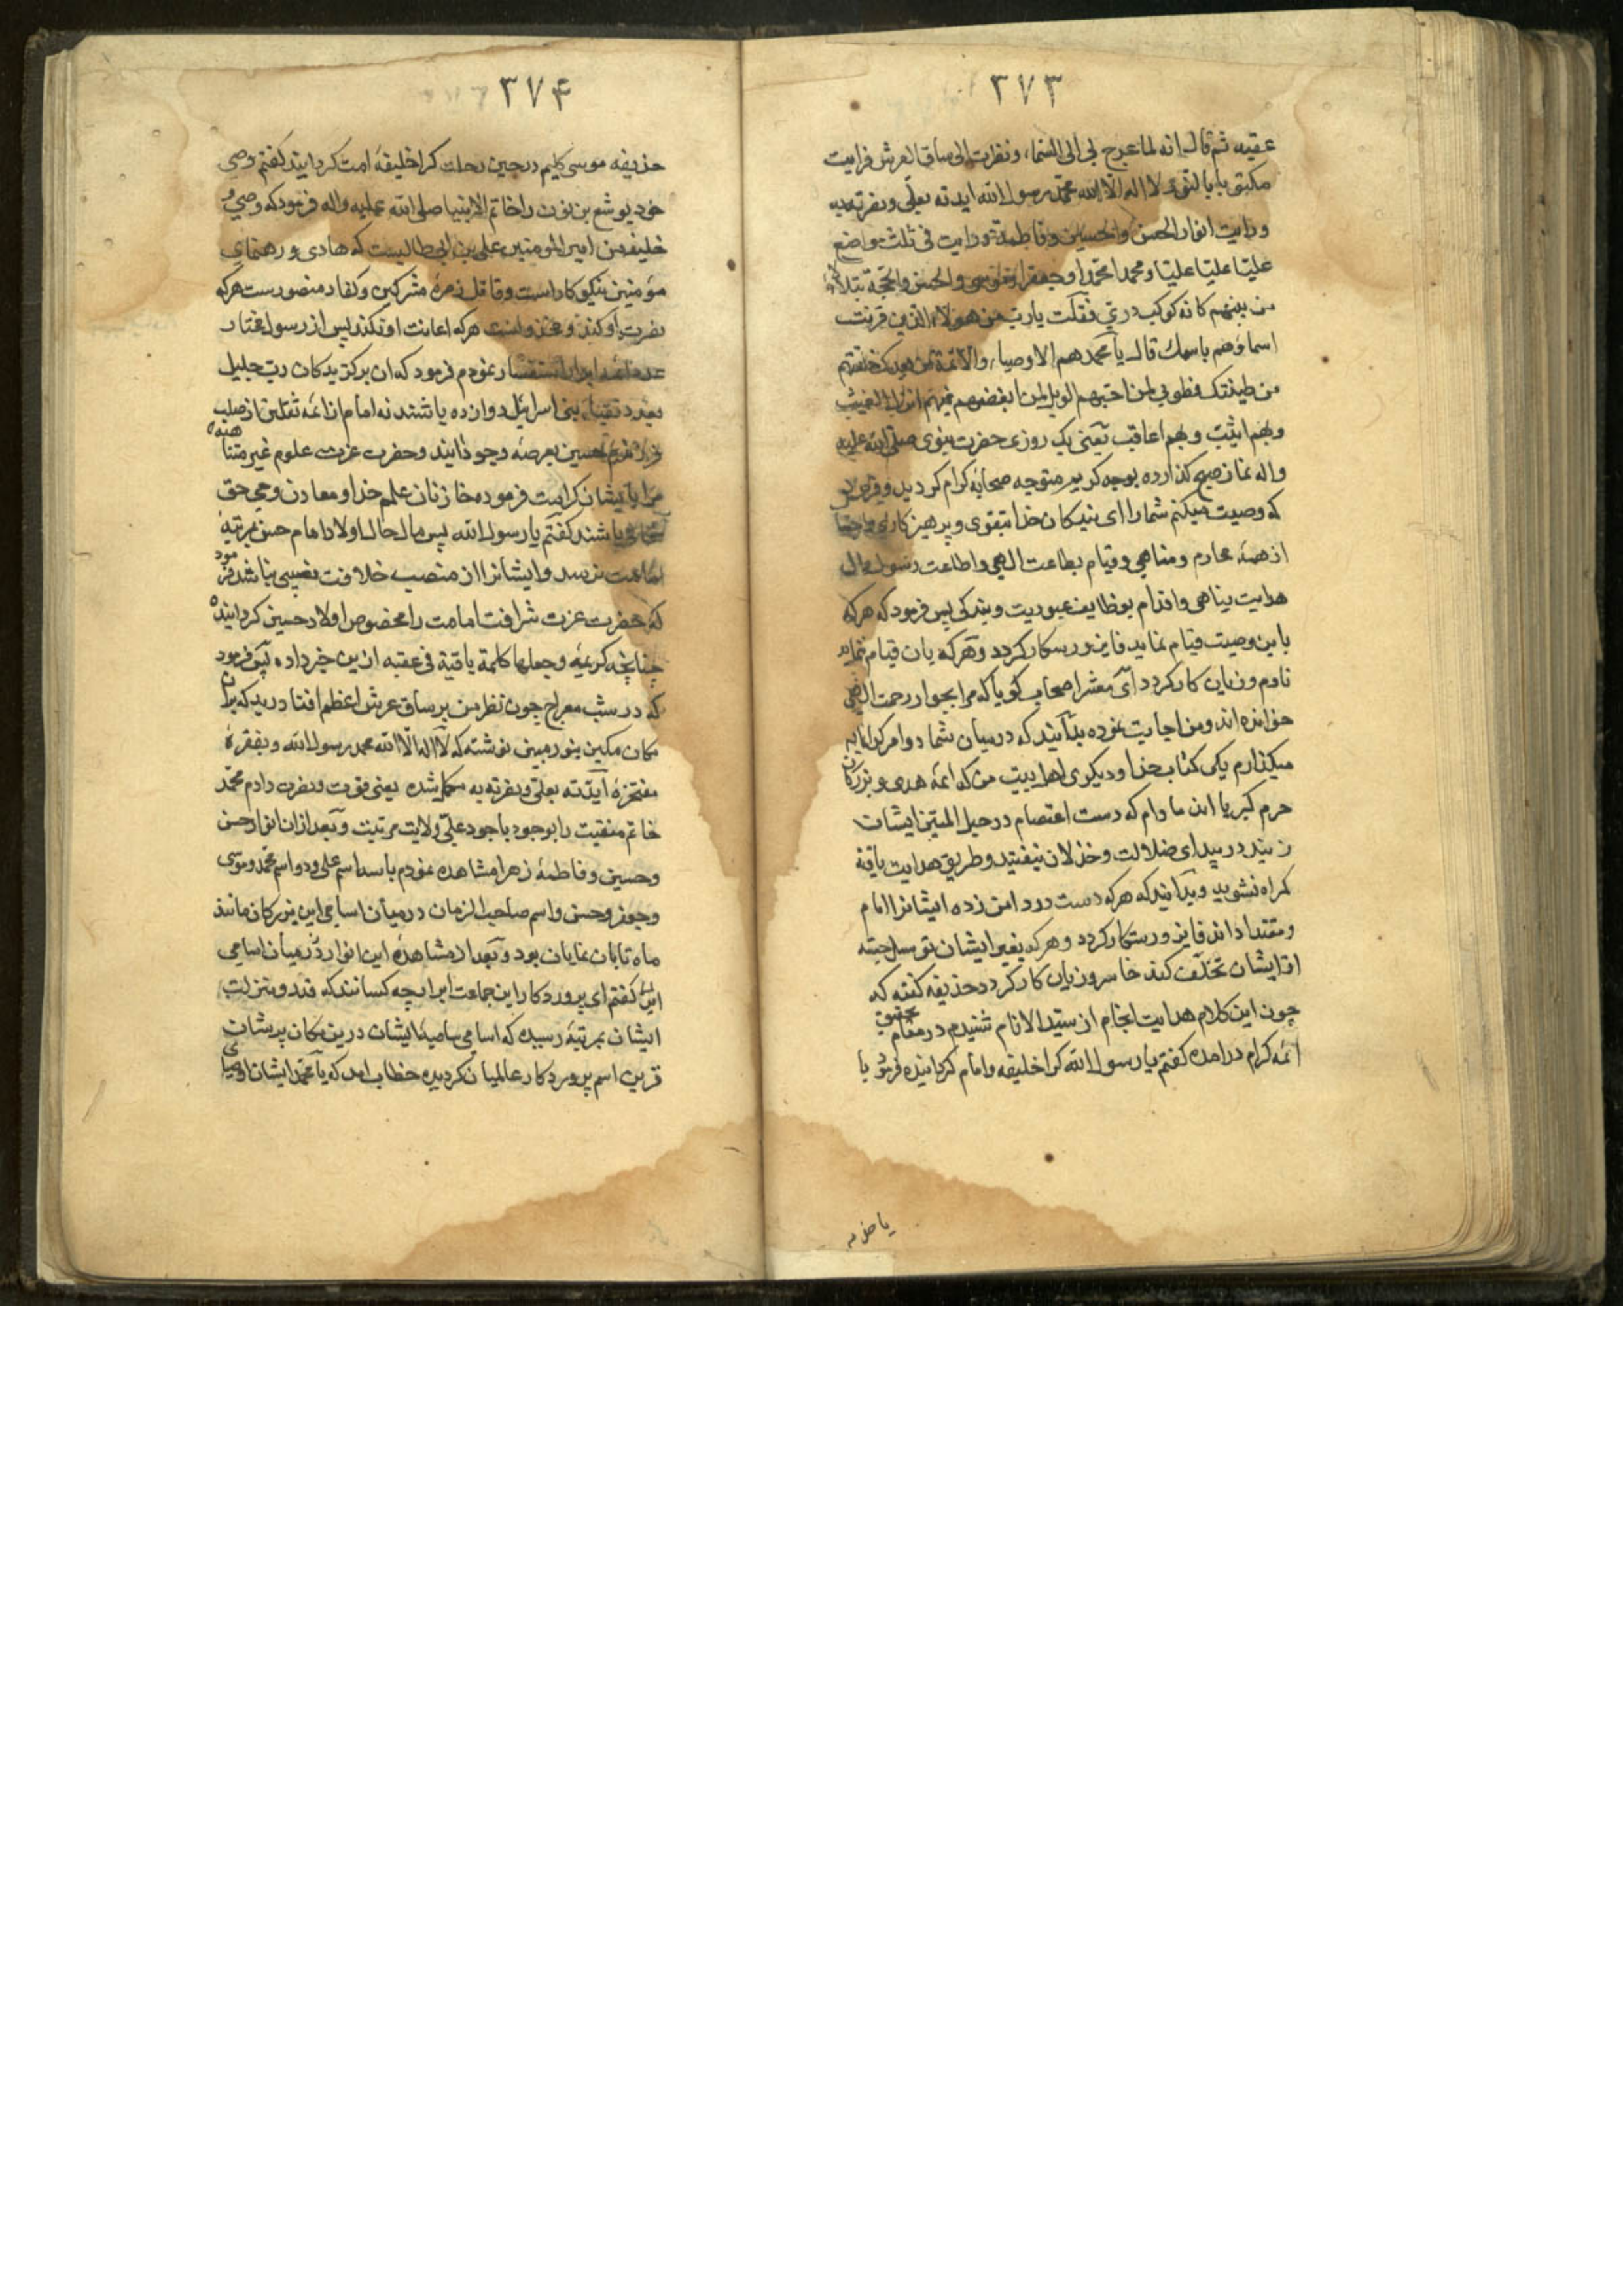 ۳۷۳
عقبه ثم قال انه لما عرج بی الی السماء ونظرت الی ساق العرش فرایت
مکتوبا بالنور لا اله الا الله محمد رسول الله ایدته بعلی ونصرته به
ورایت انوار الحسن والحسین وفاطمة ورایت فی ثلث مواضع
علیا علیا علیا ومحمدا محمدا وجعفرا وموسی والحسن والحجة یتلالأ
من بینهم کانه کوکب دری فقلت یارب من هولاء الذین قرنت
اسماؤهم باسمک قال یا محمد هم الاوصیاء والائمة من بعدک خلقتهم
من طینتک فطوبی لمن احبهم الویل لمن ابغضهم فبهم انزل الغیث
وبهم اثیب وبهم اعاقب یعنی یک روزی حضرت نبوی صلی الله علیه
واله نماز صبح کذارده بوجه کریم متوجه صحابه کرام کردید وفرمود
که وصیت میکنم شما را ای بندکان خدا بتقوی وپرهیزکاری
از همه محارم ومناهی وقیام بطاعت الهی واطاعت رسول
هدایت پناهی واقدام بوظایف عبودیت وبندکی پس فرمود که هرکه
باین وصیت قیام نماید فایز ورستکار کردد وهرکه بان قیام ننماید
نادم وزیان کار کردد ای معشر اصحاب کویا که مرا بجوار رحمت الهی
خوانده اند ومن اجابت نموده بدانید که درمیان شما دو امر کرانمایه
میکذارم یکی کتاب خدا ودیکری اهل بیت من که ائمه هدی وبزرکان
حرم کبریا اند مادام که دست اعتصام در حبل المتین ایشان
زنید در بیدای ضلالت وخذلان نیفتید وطریق هدایت یافته
کمراه نشوید وبدانید که هرکه دست در دامن زده ایشانرا امام
ومقتدا داند فایز ورستکار کردد وهرکه بغیر ایشان توسل جسته
از ایشان تخلف کند خاسر وزیان کار کردد حذیفه کفته که
چون این کلام هدایت انجام از سید الانام شنیدم در مقام تحقیق
ائمه کرام در امده کفتم یا رسول الله کرا خلیفه وامام کردانیده فرمود یا
یا حذیفه
۳۷۴
حذیفه موسی کلیم در حین رحلت کرا خلیفه امت کردانید کفتم وصی
خود یوشع بن نون را خاتم الانبیا صلی الله علیه واله فرمود که وصی و
خلیفه من امیر المومنین علی بن ابی طالبست که هادی ورهنمای
مؤمنین نیکوکار است وقاتل زمره مشرکین وکفار منصورست هرکه
نصرت او کند ومخذولست هرکه اعانت او نکند پس از رسول مختار
عدد ائمه ابرار استفسار نمودم فرمود که ان برکزیدکان رب جلیل
بعدد نقباء بنی اسرائیل دوازده باشند نه امام از ائمه ثقلین از صلب
فرزندم حسین بعرصه وجود ایند وحضرت عزت علوم غیر متناهیه
مرا بایشان کرامت فرموده خازنان علم خدا ومعادن وحی حق
باشند کفتم یا رسول الله پس مال حال اولاد امام حسن بمرتبه
امامت نرسد وایشانرا از منصب خلافت نصیبی نباشد فرمود
که حضرت عزت شرافت امامت را مخصوص اولاد حسین کردانیده
چنانچه کریمه وجعلها کلمة باقیة فی عقبه ازین خبر داده پس فرمود
که در شب معراج چون نظر من بر ساق عرش اعظم افتاد دیدکه بران
مکان مکین بنور مبین نوشته که لا اله الا الله محمد رسول الله وبفقره
مفتخره ایدته بعلی ونصرته به مکمل شده یعنی قوت ونصرت دادم محمد
خاتم منقبت را بوجود باجود علی ولایت مرتبت وبعد ازان انوار حسن
وحسین وفاطمه زهرا مشاهده نمودم با سه اسم علی ودو اسم محمد وموسی
وجعفر وحسن واسم صاحب الزمان درمیان اسامی این بزرکان مانند
ماه تابان نمایان بود وبعد از مشاهده این انوار درمیان اسامی
کفتم ای پروردکار این جماعت ابرار چه کسانند که قدر ومنزلت
ایشان بمرتبه رسیده که اسامی سامیه ایشان درین مکان
قرین اسم پروردکار عالمیان کردیده خطاب امد که یا محمد ایشان اوصیای